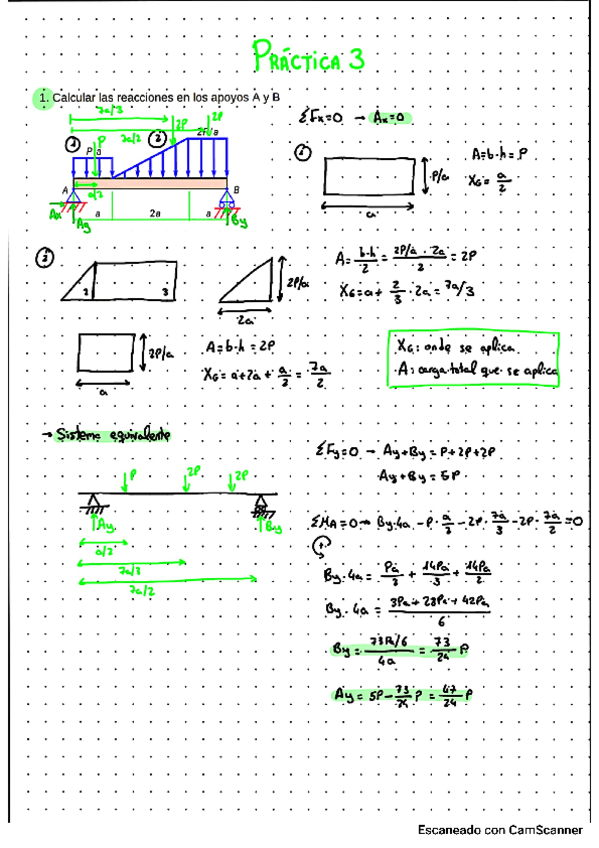 PRÁCTICA 3
1. Calcular las reacciones en los apoyos A y B
7a/3
2P
7a/2
2P
2P/a
P
P/a
A
B
a/2
Ax
Ay
a
2a
a
By
ΣFx=0 → Ax=0
A=b·h=P
XG= a/2
P/a
a
2
3
2P/a
2a
A= b·h/2 = 2P/a · 2a/2 = 2P
XG=a+ 2/3 · 2a= 7a/3
2P/a
a
A=b·h=2P
XG= a+2a+ a/2 = 7a/2
XG: onde se aplica
A: carga total que se aplica
→ Sistema equivalente
P
2P
2P
Ay
By
a/2
7a/3
7a/2
ΣFy=0 → Ay+By = P+2P+2P
Ay+By = 5P
ΣMA=0→ By·4a - P· a/2 - 2P· 7a/3 - 2P· 7a/2 =0
By·4a= Pa/2 + 14Pa/3 + 14Pa/2
By·4a= 3Pa+28Pa+42Pa/6
By= 73Pa/6/4a = 73/24 P
Ay= 5P- 73/24 P = 47/24 P
Escaneado con CamScanner